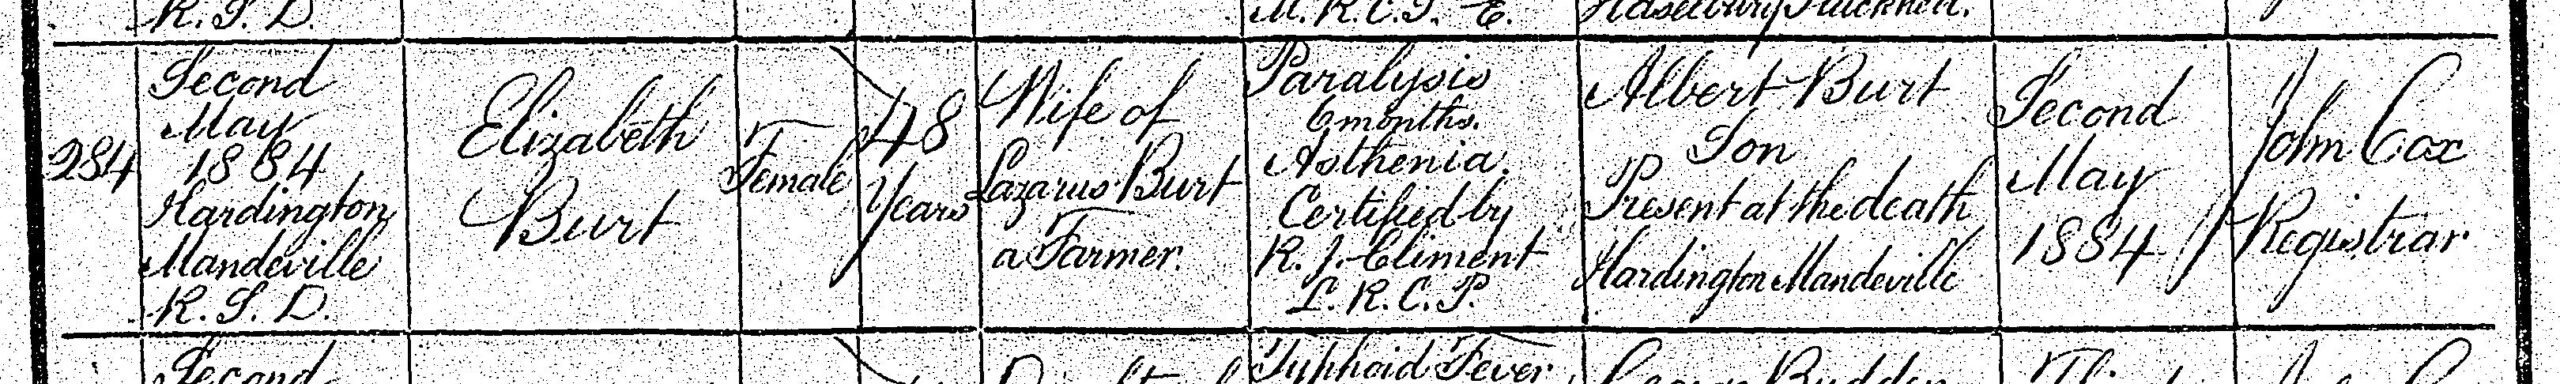 R. S. D.
M. R. C. S. E.
Haselbury Plucknett.
284
Second
May
1884
Hardington
Mandeville
R. S. D.
Elizabeth
Burt
Female
48
Years
Wife of
Lazarus Burt
a Farmer.
Paralysis
6 months.
Asthenia.
Certified by
R. J. Climent
L. R. C. P.
Albert Burt
Son
Present at the death
Hardington Mandeville
Second
May
1884
John Cox
Registrar
Second
Typhoid Fever
George Budden